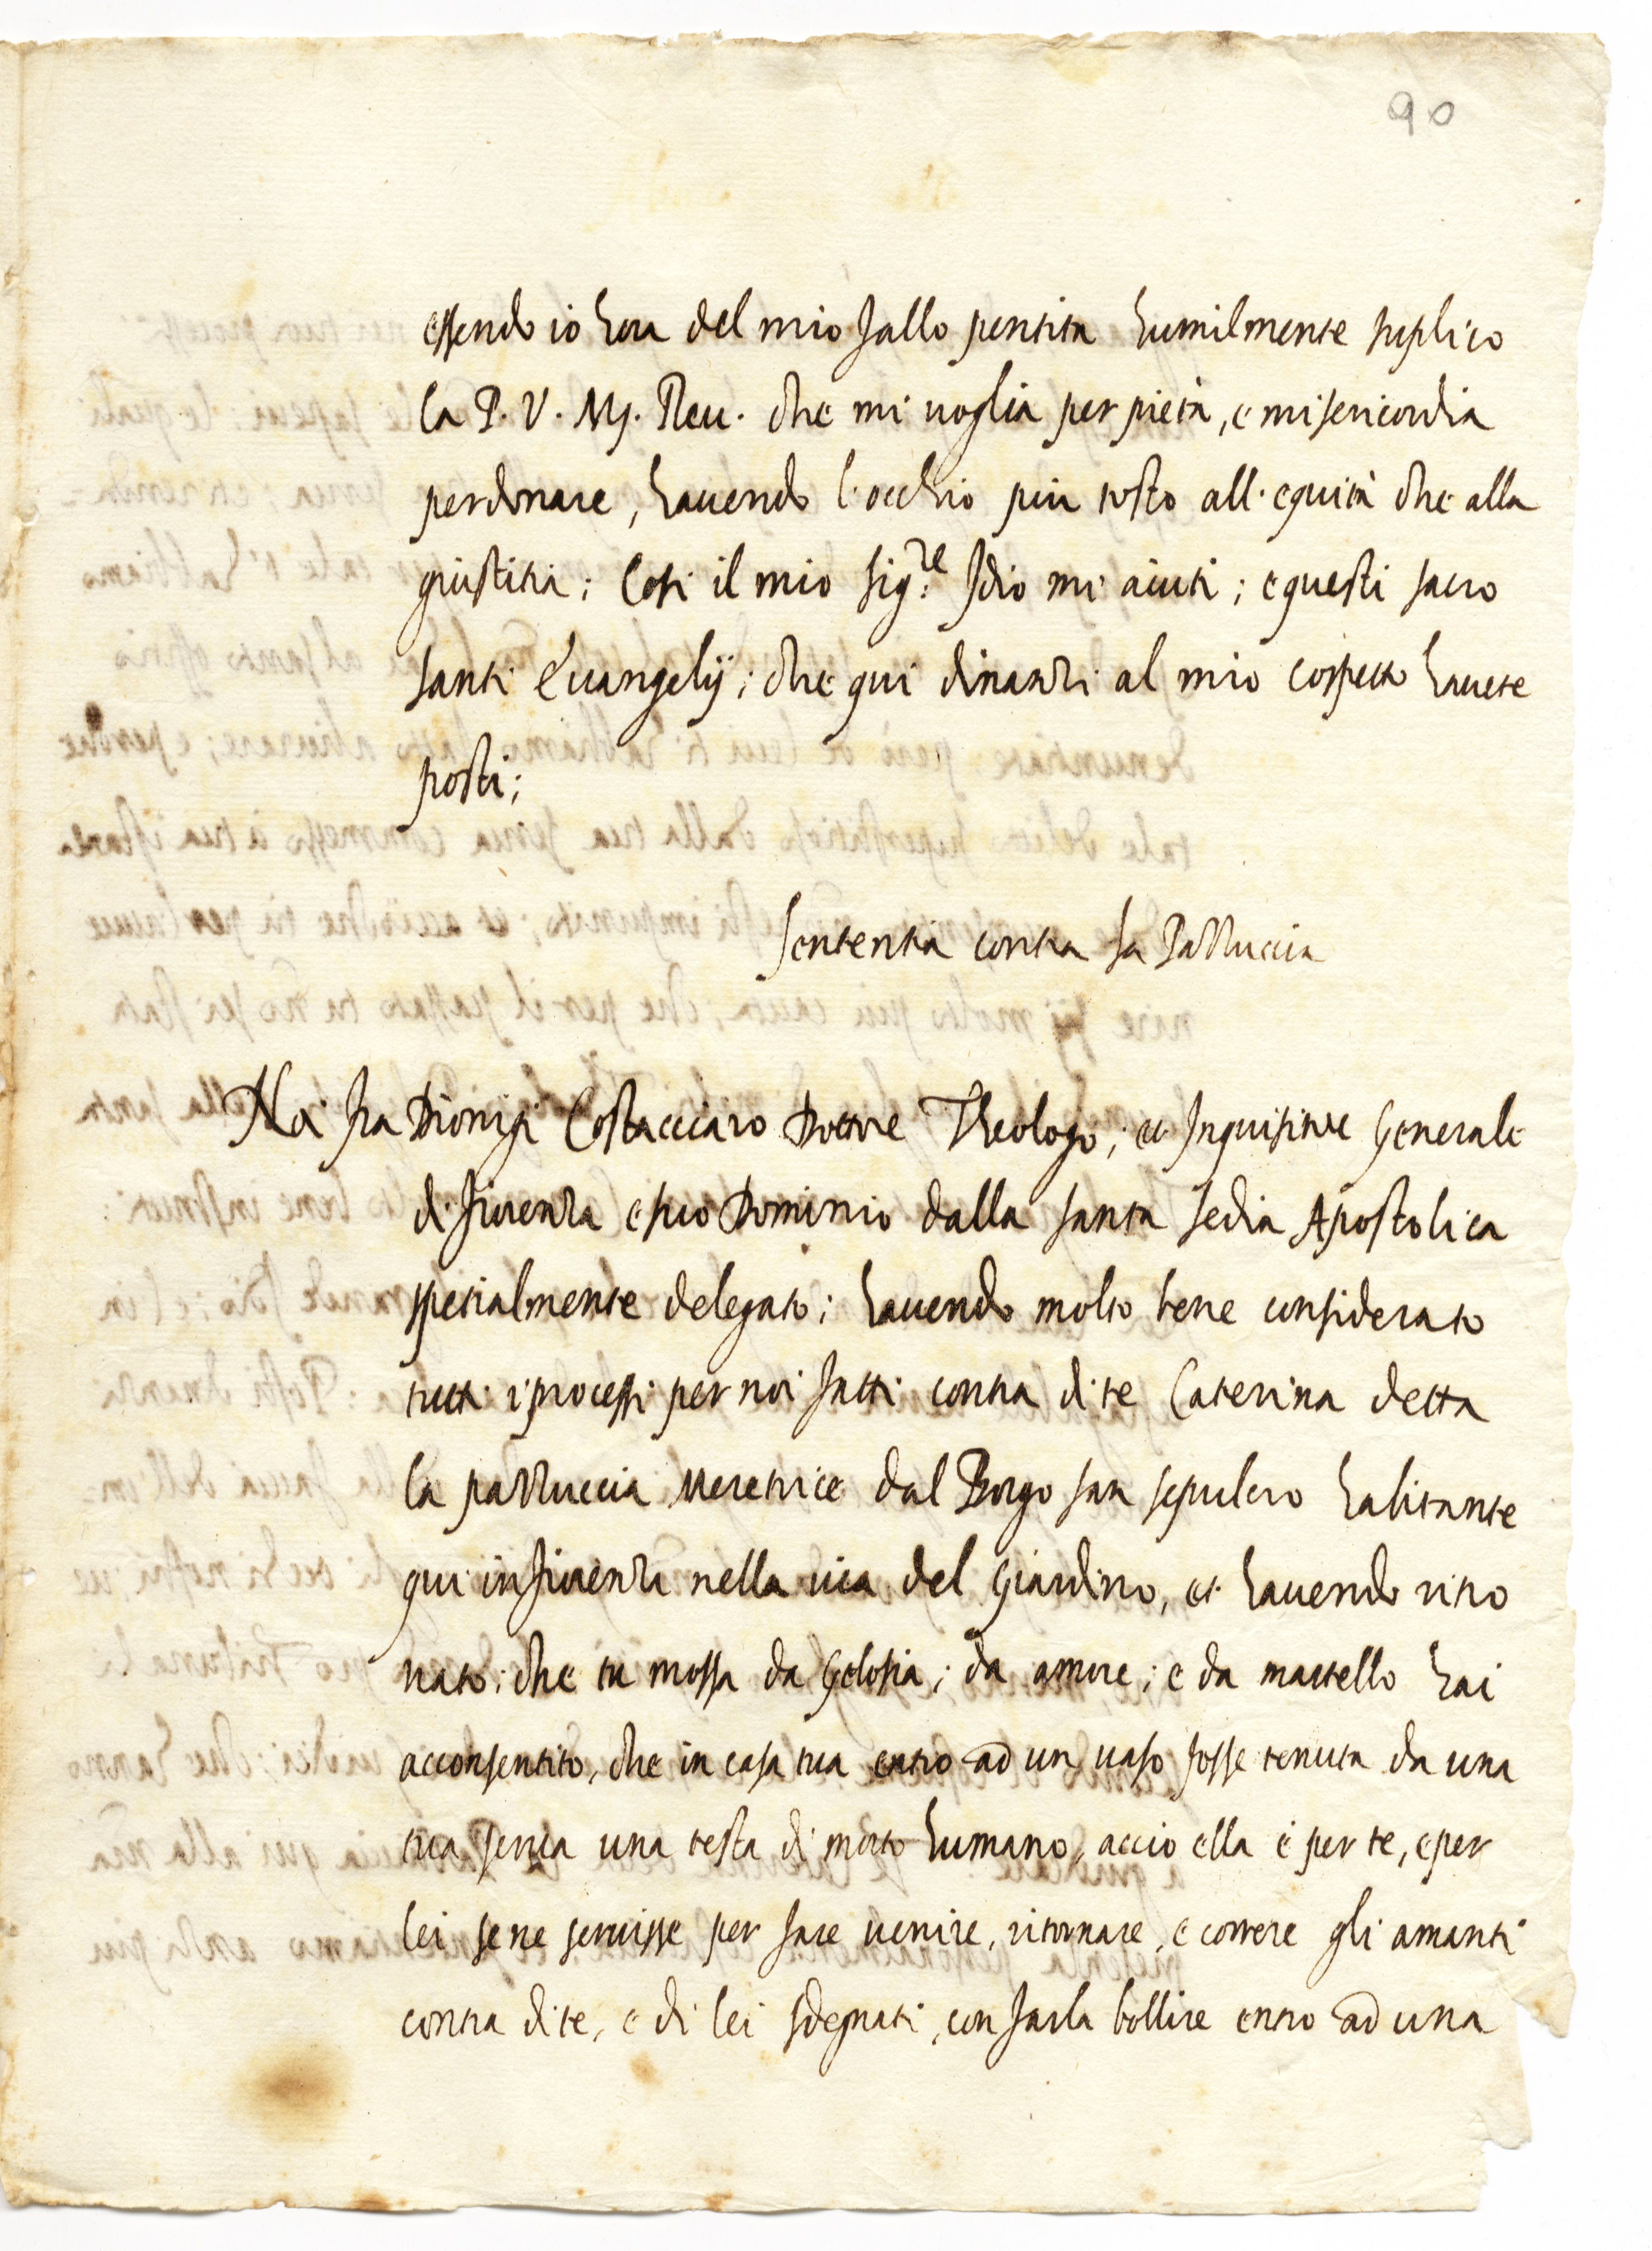 90
essendo io hora del mio fallo pentita humilmente suplico
la P. V. M. Reu. che mi uoglia per pietà, e misericordia
perdonare, hauendo l'occhio piu tosto all'equità che alla
giustitia; Cosi il mio sig:re Idio mi aiuti; e questi sacro
santi Euangelij; che qui dinanzi al mio cospetto hauete
posti;
Sententia contra la Pazzuccia
Noi fra Dionigi Costacciaro Dottore Theologo; et Inquisitore Generale
di fiorenza e suo Dominio dalla santa sedia Apostolica
spetialmente delegato; hauendo molto bene considerato
tutti i processi per noi fatti contra di te Caterina detta
la pazzuccia Meretrice dal Borgo san sepulcro habitante
qui in fiorenza nella uia del Giardino, et hauendo ritro
uato; che tu mossa da Gelosia; da amore; e da martello hai
acconsentito, che in casa tua entro ad un uaso fosse tenuta da una
tua serua una testa di morto humano, accio ella e per te, e per
lei se ne seruisse per fare uenire, ritornare, e correre gli amanti
contra di te, e di lei sdegnati, con farla bollire entro ad una